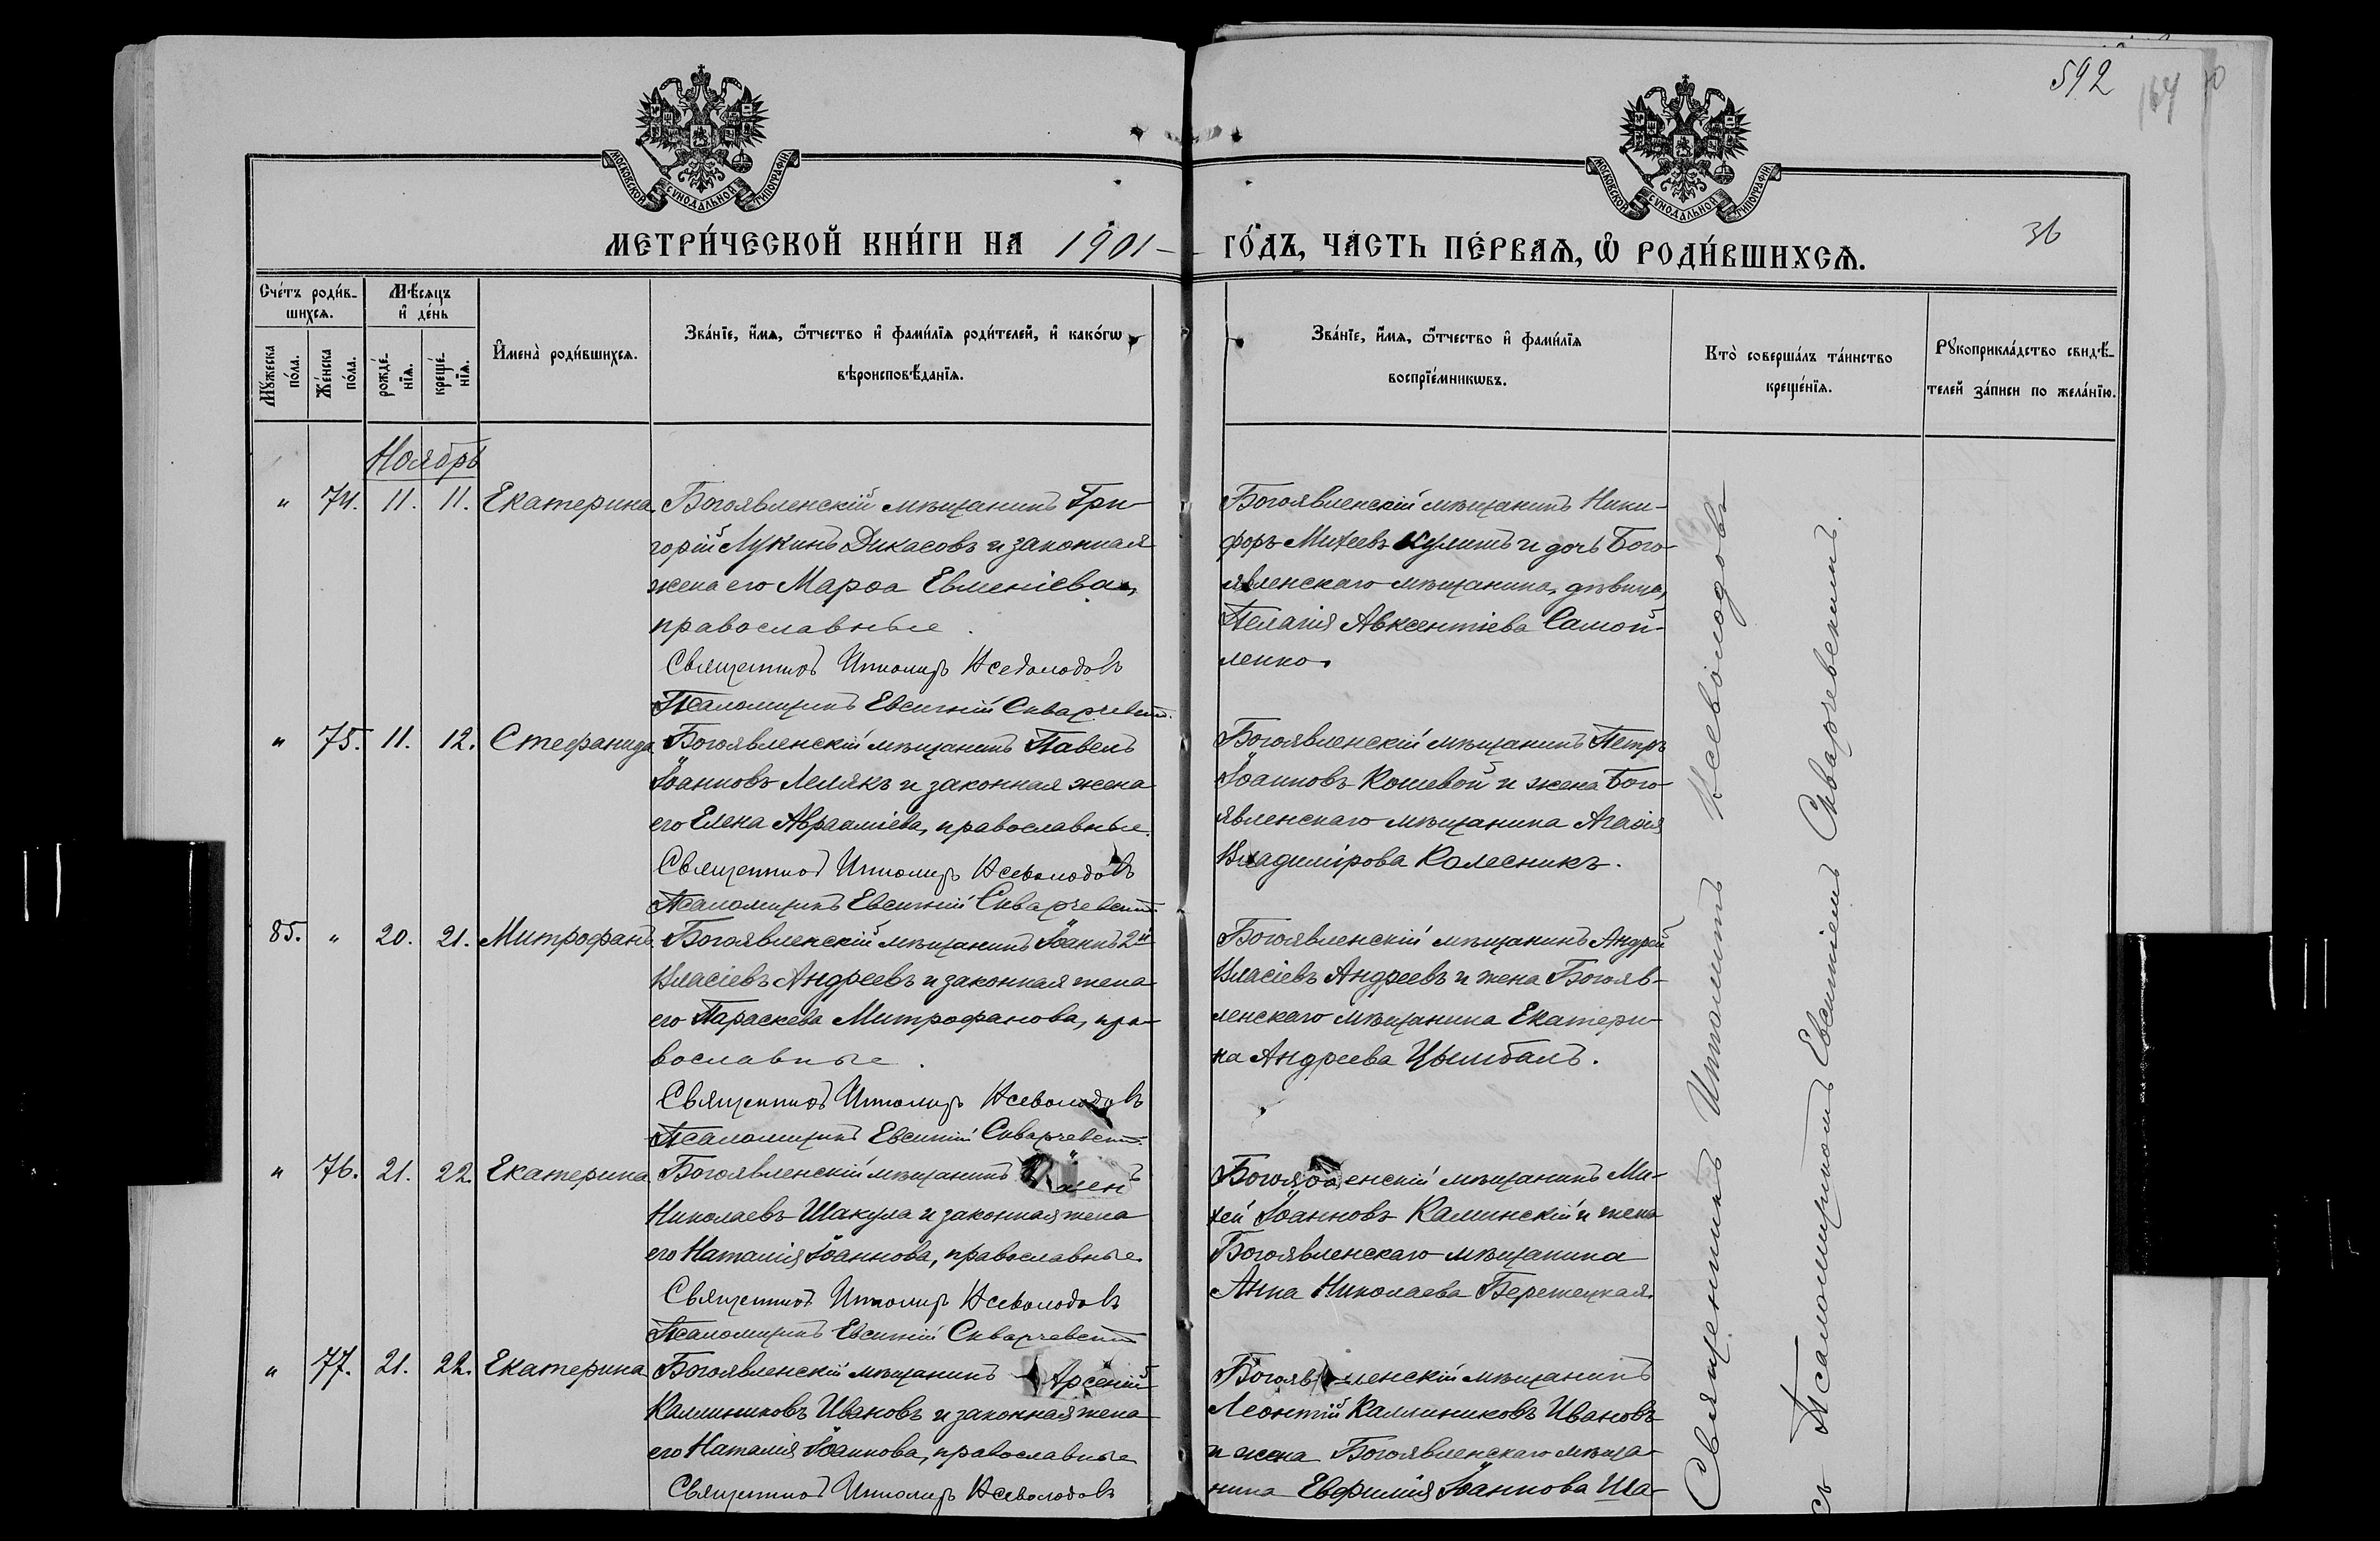 592
164
МОСКОВСКОЙ СѴНОДАЛЬНОЙ ТИПОГРАФІИ.
МОСКОВСКОЙ СѴНОДАЛЬНОЙ ТИПОГРАФІИ.
МЕТРИ́ЧЕСКОЙ КНИ́ГИ НА 1901 ГО́ДЪ, ЧА́СТЬ ПЕ́РВАѦ, Ѡ҆ РОДИ́ВШИХСѦ.
36
Сче́тъ роди́в-
шихсѧ.
Мѣ́сѧцъ
и҆ де́нь
Мꙋ́жеска
по́ла.
Же́нска
по́ла.
рожде́-
нїѧ.
креще́-
нїѧ.
И҆мена̀ роди́вшихсѧ.
Зва́нїе, и҆́мѧ, ѻ҆́тчество и҆ фами́лїѧ роди́телей, и҆ како́гѡ
вѣроисповѣ́данїѧ.
Зва́нїе, и҆́мѧ, ѻ҆́тчество и҆ фами́лїѧ
воспрїе́мникѡвъ.
Кто̀ соверша́лъ та́инство
креще́нїѧ.
Рꙋкоприкла́дство свидѣ́-
телей за́писи по жела́нїю.
Ноябрь
" 74. 11. 11. Екатерина.
Богоявленскій мѣщанинъ Гри-
горій Лукинъ Дикасовъ и законная
жена его Марѳа Евменіева,
православные.
Священникъ Ипполитъ Всеволодовъ
Псаломщикъ Евсигній Скварчевскій.
Богоявленскій мѣщанинъ Ники-
форъ Михеевъ Кулишъ и дочь Бого-
явленскаго мѣщанина, дѣвица,
Пелагія Авксентіева Самой-
ленко.
" 75. 11. 12. Стефанида
Богоявленскій мѣщанинъ Павелъ
Іоанновъ Лелякъ и законная жена
его Елена Авраамiева, православные.
Священникъ Ипполитъ Всеволодовъ
Псаломщикъ Евсигній Скварчевскій
Богоявленскій мѣщанинъ Петръ
Іоанновъ Кошевой и жена Бого-
явленскаго мѣщанина Агаѳія
Владимірова Колесникъ.
85. " 20. 21. Митрофанъ
Богоявленскій мѣщанинъ Іоаннъ 2й
Власіевъ Андреевъ и законная жена
его Параскева Митрофанова, пра-
вославные.
Священникъ Ипполитъ Всеволодовъ
Псаломщикъ Евсигній Скварчевскій.
Богоявленскій мѣщанинъ Андрей
Власіевъ Андреевъ и жена Богояв-
ленскаго мѣщанина Екатери-
на Андреева Цымбалъ.
" 76. 21. 22. Екатерина
Богоявленскій мѣщанинъ
Николаевъ Шакула и законная жена
его Наталія Іоаннова, православные.
Священникъ Ипполитъ Всеволодовъ
Псаломщикъ Евсигній Скварчевскій
Богоявленскій мѣщанинъ Ми-
хей Іоанновъ Калинскій и жена
Богоявленскаго мѣщанина
Анна Николаева Бережецкая.
" 77. 21. 22. Екатерина
Богоявленскій мѣщанинъ Арсеній
Каллиниковъ Ивановъ и законная жена
его Наталія Іоаннова, православные
Священникъ Ипполитъ Всеволодовъ
Богоявленскій мѣщанинъ
Леонтій Каллиниковъ Ивановъ
и жена Богоявленскаго мѣща-
нина Евфимія Іоаннова Ша-
Священникъ Ипполитъ Всеволодовъ
съ Псаломщикомъ Евсигніемъ Скварчевскимъ.